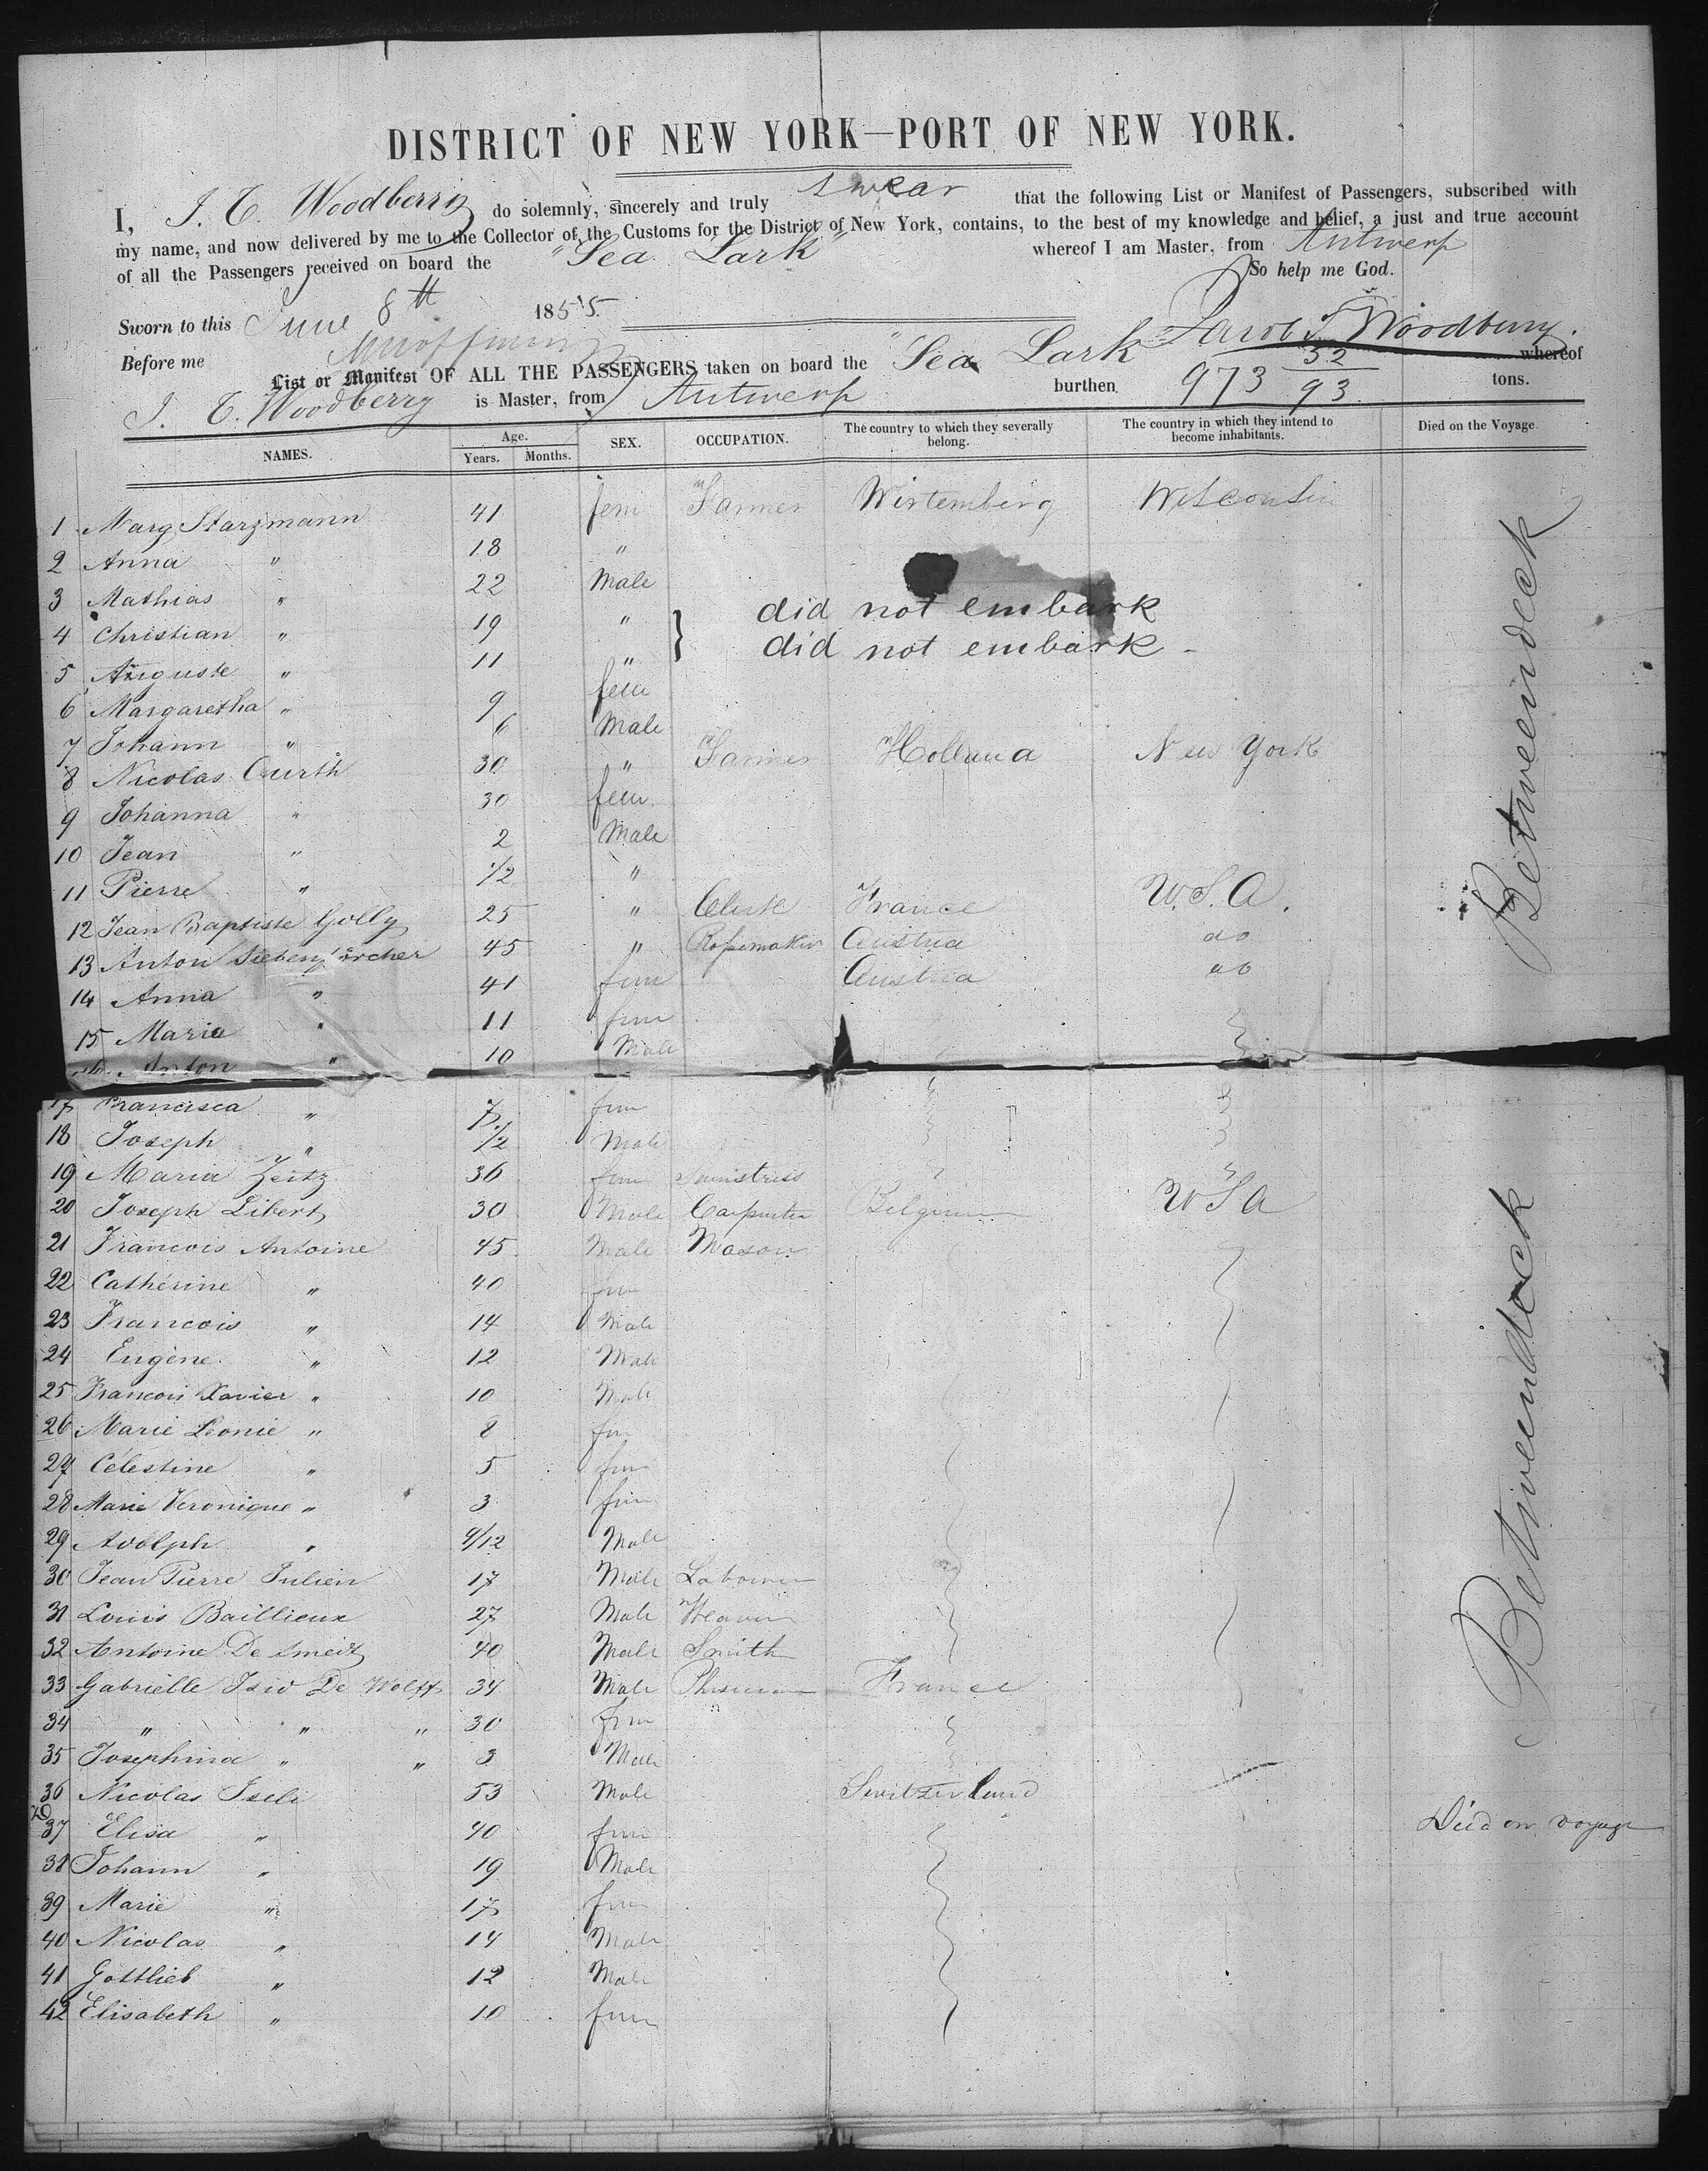 DISTRICT OF NEW YORK—PORT OF NEW YORK.
I, J. T. Woodberry do solemnly, sincerely and truly swear that the following List or Manifest of Passengers, subscribed with
my name, and now delivered by me to the Collector of the Customs for the District of New York, contains, to the best of my knowledge and belief, a just and true account
of all the Passengers received on board the "Sea Lark" whereof I am Master, from Antwerp
So help me God.
Sworn to this June 8th 1855.
Jacob T Woodbury.
Before me
List or Manifest OF ALL THE PASSENGERS taken on board the "Sea Lark whereof
J. T. Woodberry is Master, from Antwerp burthen, 973 32/93. tons.
NAMES. Age. Years. Months. SEX. OCCUPATION. The country to which they severally belong. The country in which they intend to become inhabitants. Died on the Voyage.
1 Marg Starzmann 41 fem Farmer Wirtemberg Wisconsin
2 Anna " 18 "
3 Mathias " 22 Male
4 Christian " 19 " } did not embark
5 Auguste " 11 " did not embark -
6 Margaretha " 9 fem
7 Johann " 6 Male
8 Nicolas Curth 30 " Farmer Holland New York
9 Johanna " 30 fem.
10 Jean " 2 Male
11 Pierre " 1/2 "
12 Jean Baptiste Golly 25 " Clerk France U.S.A.
13 Anton 45 " Ropemaker Austria do
14 Anna " 41 fem Austria do
15 Maria " 11 fem
16 Anton " 10 Male
17 Francisca " 7 fem
18 Joseph " 1/2 Male
19 Maria Zeitz 36 fem Seamstress
20 Joseph Libert 30 Male Carpenter Belgium U S A
21 Francois Antoine 45 Male Mason
22 Cathérine " 40 fem
23 Francois " 14 Male
24 Eugène " 12 Male
25 Francois Xavier " 10 Male
26 Marie Leonie " 8 fem
27 Célestine " 5 fem
28 Marie Veronique " 3 fem
29 Adolph " 9/12 Male
30 Jean Pierre Julien 17 Male Labourer
31 Louis Baillieux 27 Male Weaver
32 Antoine De Smedt 40 Male Smith
33 Gabrielle De Wolff 34 Male Physician France
34 " " " 30 fem
35 Josephina " " 3 Male
36 Nicolas Iseli 53 Male Switzerland
37 Elisa " 40 fem Died on voyage
38 Johann " 19 Male
39 Marie " 17 fem
40 Nicolas " 14 Male
41 Gottlieb " 12 Male
42 Elisabeth " 10 fem
Betweendeck
Betweendeck